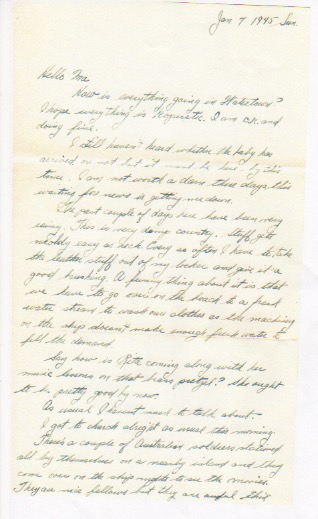 Jan 7 1945 Sun.
Hello Ma
How is everything going in
I hope everything is I am O.K. and
doing fine.
I still haven't heard whether the baby has
arrived or not but it must be here by this
time. I am not worth a damn these days this
waiting for news is getting me down.
The past couple of days here have been very
rainy. This is very damp country. Stuff gets
moldy easy as heck. Every so often I have to take
the leather stuff out of my locker and give it a
good brushing. A funny thing about it is that
we have to go over on the beach to a fresh
water stream to wash our clothes as the machine
on the ship doesn't make enough fresh water to
fill the demand.
Say how is coming along with her
music lessons on that brass pretzel? She ought
to be pretty good by now.
As usual I haven't much to talk about.
I got to church alright as usual this morning.
There's a couple of Australian soldiers stationed
all by themselves on a nearby island and they
come over on the ship nights to see the movies.
They are nice fellows but they are awful thin